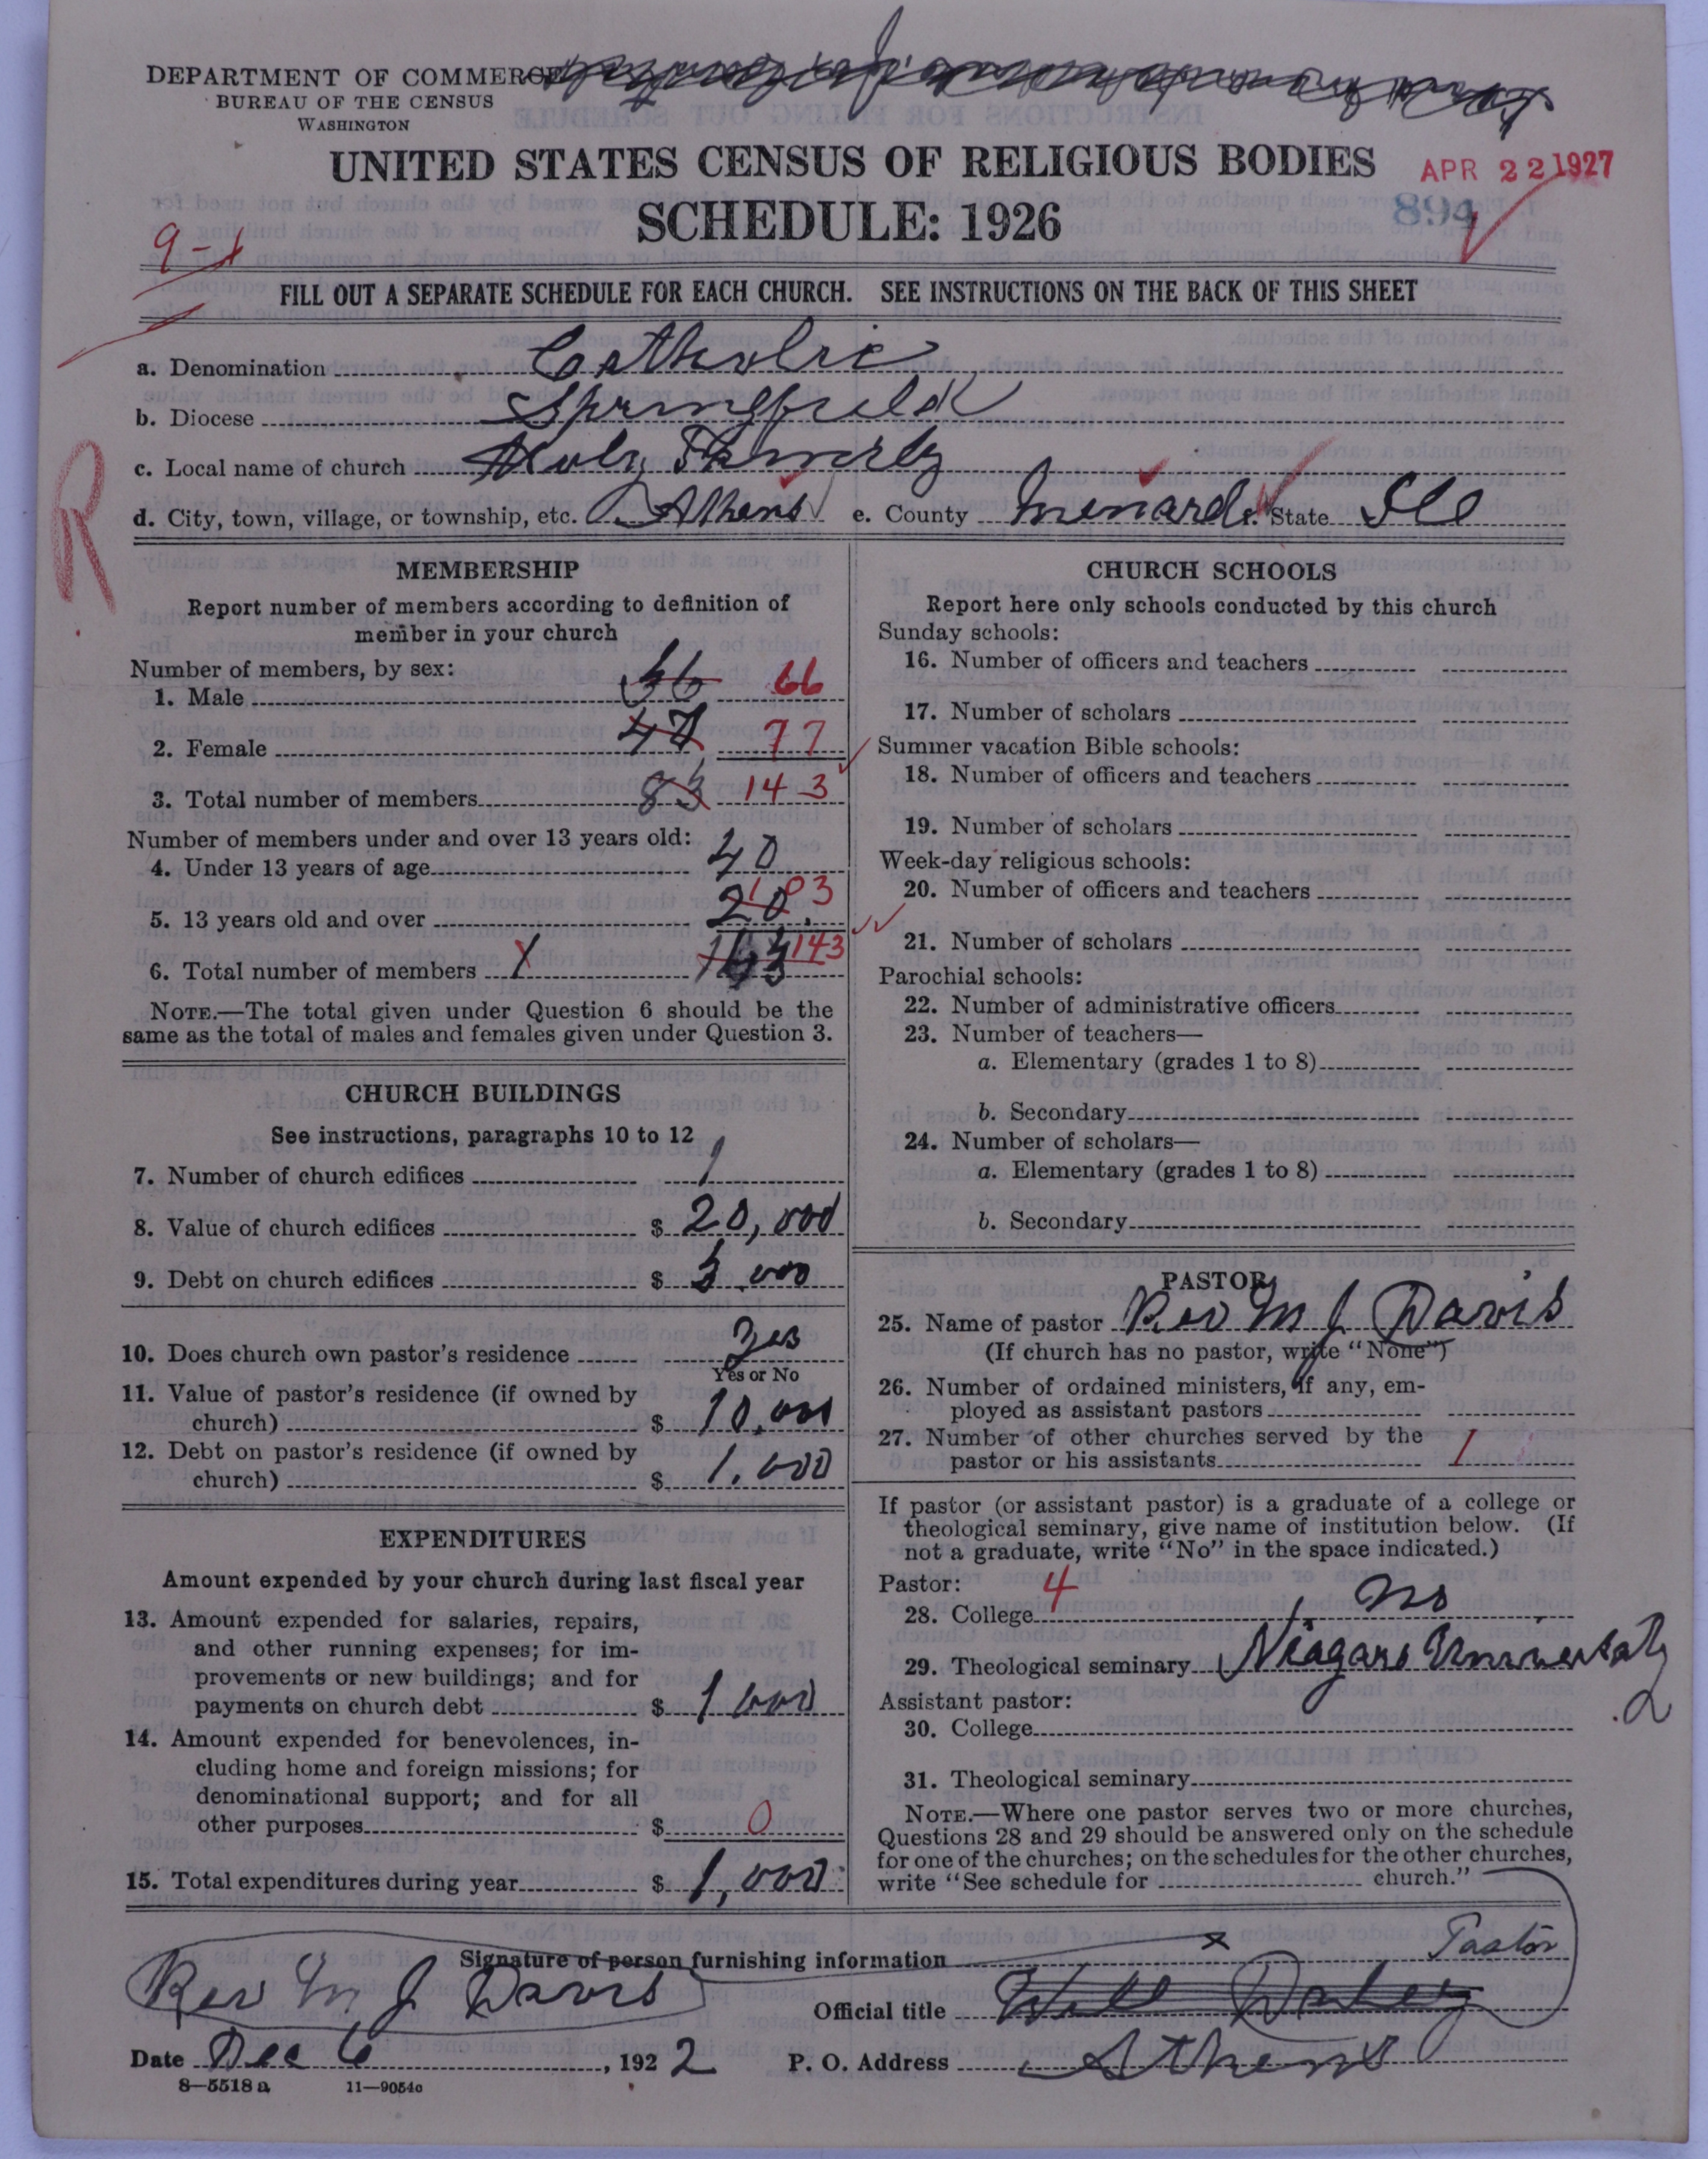 DEPARTMENT OF COMMERCE
BUREAU OF THE CENSUS
WASHINGTON
UNITED STATES CENSUS OF RELIGIOUS BODIES
APR 22 1927
SCHEDULE: 1926
894
9-1
FILL OUT A SEPARATE SCHEDULE FOR EACH CHURCH. SEE INSTRUCTIONS ON THE BACK OF THIS SHEET
a. Denomination Catholic
b. Diocese Springfield
c. Local name of church Holy Family
d. City, town, village, or township, etc. Athens e. County Menard State Ill
R
MEMBERSHIP
Report number of members according to definition of
member in your church
Number of members, by sex:
1. Male 36 66
2. Female 47 77
3. Total number of members 83 143
Number of members under and over 13 years old:
4. Under 13 years of age 40
5. 13 years old and over 20 103
6. Total number of members X 143
NOTE.—The total given under Question 6 should be the
same as the total of males and females given under Question 3.
CHURCH BUILDINGS
See instructions, paragraphs 10 to 12
7. Number of church edifices 1
8. Value of church edifices $ 20,000
9. Debt on church edifices $ 3,000
10. Does church own pastor's residence Yes
Yes or No
11. Value of pastor's residence (if owned by
church) $ 10,000
12. Debt on pastor's residence (if owned by
church) $ 1,000
EXPENDITURES
Amount expended by your church during last fiscal year
13. Amount expended for salaries, repairs,
and other running expenses; for im-
provements or new buildings; and for
payments on church debt $ 1000
14. Amount expended for benevolences, in-
cluding home and foreign missions; for
denominational support; and for all
other purposes $ 0
15. Total expenditures during year $ 1,000
CHURCH SCHOOLS
Report here only schools conducted by this church
Sunday schools:
16. Number of officers and teachers
17. Number of scholars
Summer vacation Bible schools:
18. Number of officers and teachers
19. Number of scholars
Week-day religious schools:
20. Number of officers and teachers
21. Number of scholars
Parochial schools:
22. Number of administrative officers
23. Number of teachers—
a. Elementary (grades 1 to 8)
b. Secondary
24. Number of scholars—
a. Elementary (grades 1 to 8)
b. Secondary
PASTOR
25. Name of pastor Rev M J Davis
(If church has no pastor, write "None")
26. Number of ordained ministers, if any, em-
ployed as assistant pastors
27. Number of other churches served by the
pastor or his assistants 1
If pastor (or assistant pastor) is a graduate of a college or
theological seminary, give name of institution below. (If
not a graduate, write "No" in the space indicated.)
Pastor: 4
28. College no
29. Theological seminary Niagara University
2
Assistant pastor:
30. College
31. Theological seminary
NOTE.—Where one pastor serves two or more churches,
Questions 28 and 29 should be answered only on the schedule
for one of the churches; on the schedules for the other churches,
write "See schedule for church."
Signature of person furnishing information x Pastor
Rev M J Davis Official title Will Daley
Date Dec 6, 1922 P. O. Address Athens
8—5518 a 11—9054c